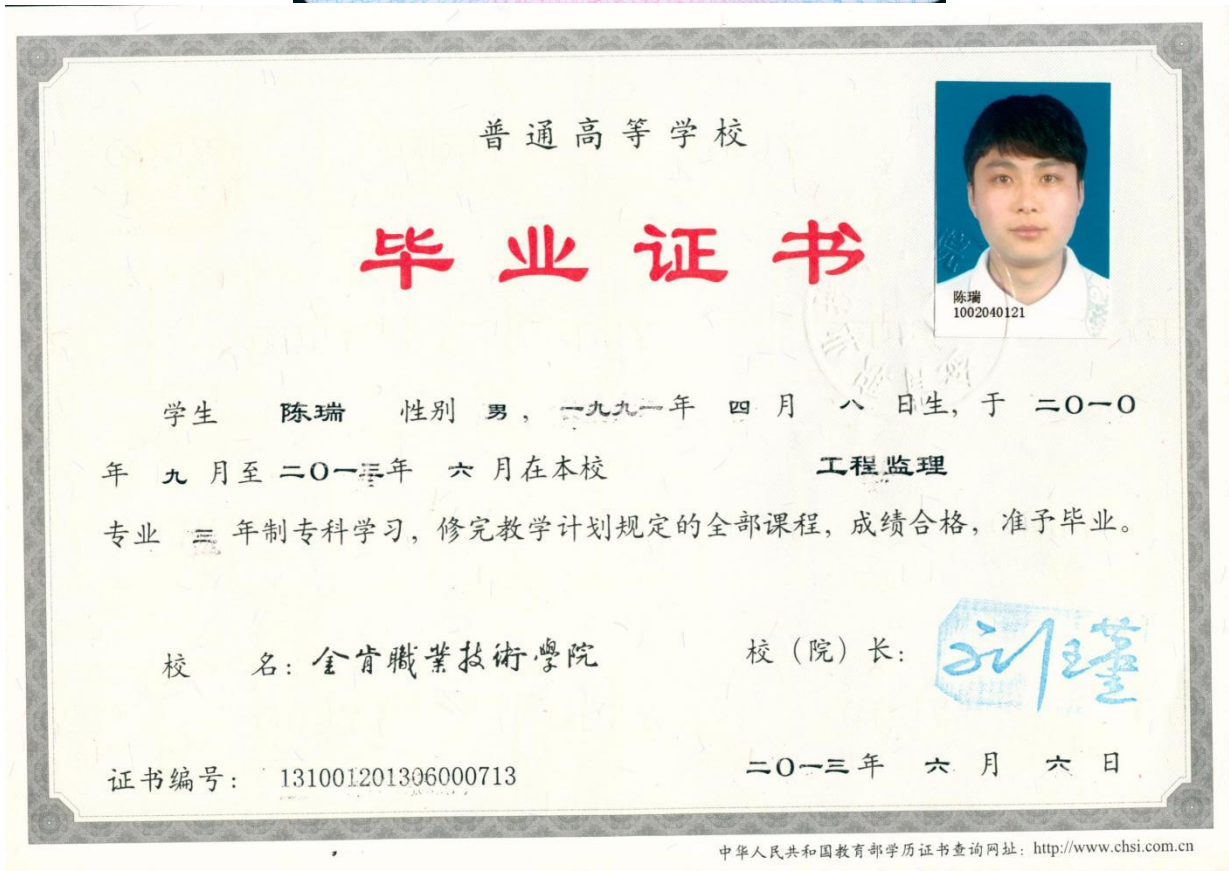 普通高等学校
毕业证书
陈瑞
1002040121
学生 陈瑞 性别 男，一九九一年 四 月 八 日生，于 二〇一〇
年 九 月至 二〇一三年 六 月在本校 工程监理
专业 三 年制专科学习，修完教学计划规定的全部课程，成绩合格，准予毕业。
校 名：金肯職業技術學院 校（院）长：刘瑾
证书编号： 131001201306000713 二〇一三年 六 月 六 日
中华人民共和国教育部学历证书查询网址：http://www.chsi.com.cn